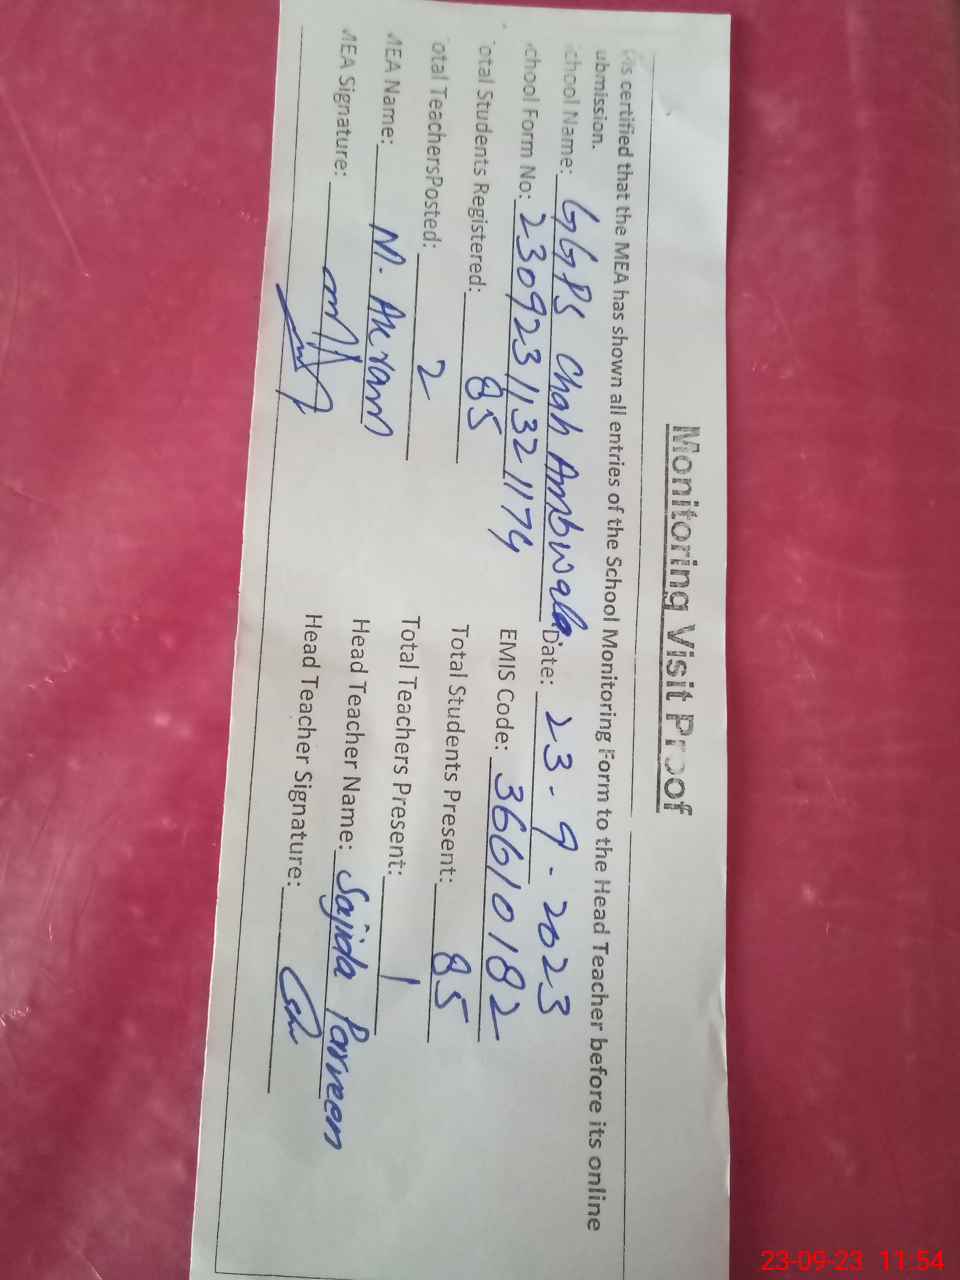 Monitoring Visit Proof
is certified that the MEA has shown all entries of the School Monitoring Form to the Head Teacher before its online
ubmission.
chool Name: GGPS Chah Ambwala. Date: 23-9-2023
chool Form No: 23092311321174 EMIS Code: 36610182
otal Students Registered: 85 Total Students Present: 85
otal TeachersPosted: 2 Total Teachers Present: 1
MEA Name: M. Akram Head Teacher Name: Sajida Parveen
MEA Signature: Head Teacher Signature:
23-09-23 11:54